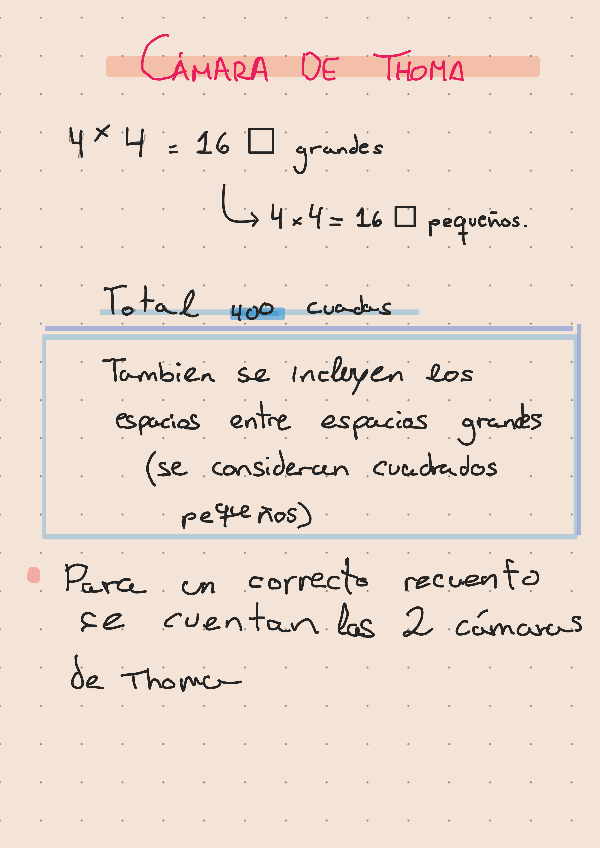 CÁMARA DE THOMA
4 × 4 = 16 □ grandes
↳ 4 × 4 = 16 □ pequeños.
Total 400 cuadas
Tambien se incluyen los
espacios entre espacios grandes
(se consideran cuadrados
pequeños)
Para un correcto recuento
se cuentan las 2 cámaras
de Thoma